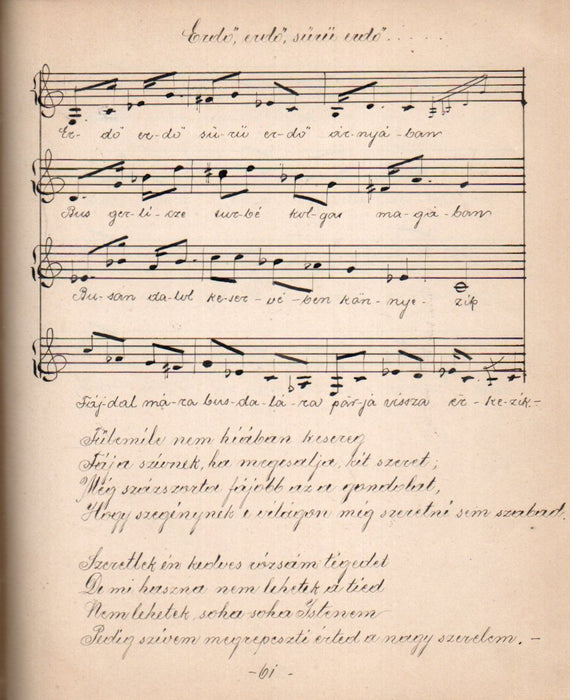 Erdő, erdő, sürü erdő . . . . . .
Er- dő er-dő sü-rü er-dő ár-nyá-ban
Bus ger-li-cze tur-bé kol-gat ma-gá-ban
Bu-sán dalol ke-ser-vé-ben kön-nye-zik
Fáj-dal má-ra bus-da-lá-ra pár-ja vissza ér-ke-zik.-
Fülemile nem hiában kesereg
Fája szivnek, ha megcsalja, kit szeret;
Még százszorta fájóbb az a gondolat,
Hogy szegénynek e világon még szeretni sem szabad.
Szeretlek én kedves rózsám tégedet
De mi haszna nem lehetek a tied
Nem lehetek, soha soha Istenem
Pedig szivem megrepeszti érted a nagy szerelem. -
-61-